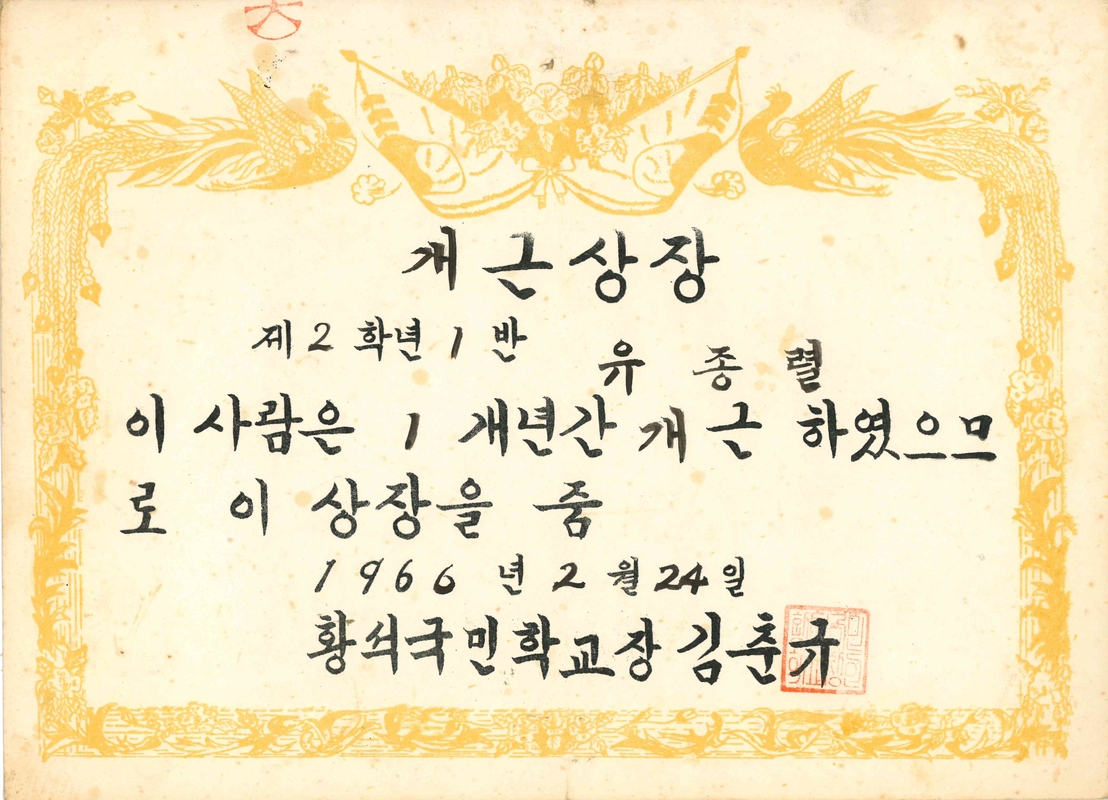 개근상장
제2학년 1반
유 종 렬
이 사람은 1 개년간 개근 하였으므
로 이 상장을 줌
1966 년 2 월 24 일
황쇠국민학교장 김춘규